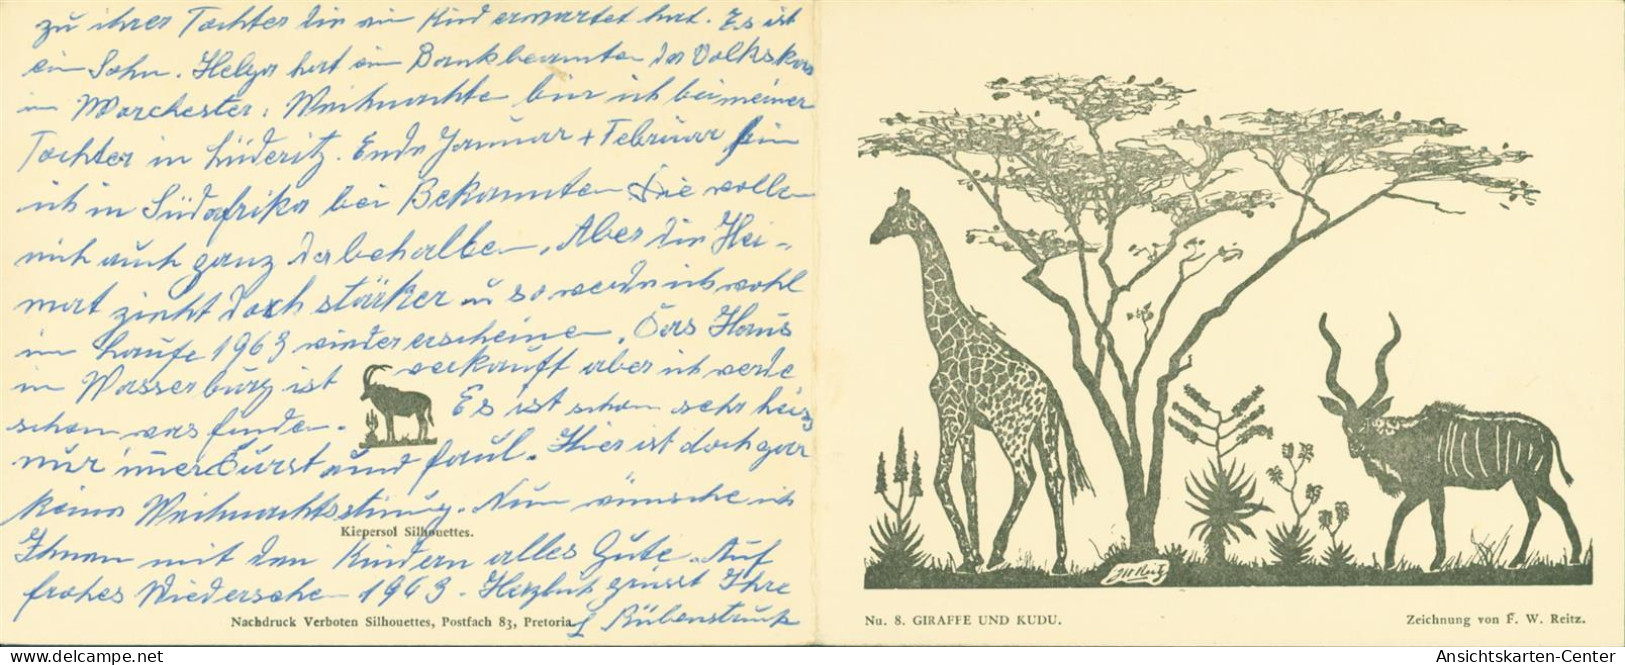 zu ihrer Tochter die ein Kind erwartet hat. Es ist
ein Sohn. Helga hat ein Bankbeamten der Volkskas
in Worchester. Weihnachten bin ich bei meiner
Tochter in Lüderitz. Ende Januar + Februar bin
ich in Südafrika bei Bekannten Die wollen
mich auch ganz dabehalben. Aber die Hei-
mat zieht doch stärker u so werde ich wohl
im Laufe 1963 wieder erscheinen. Das Haus
in Wasserburg ist verkauft aber ich werde
schon was finden. Es ist schon sehr heis
nur immer Durst und faul. Hier ist doch gar
keine Weihnachtsstimung. Nun wünsche ich
Kiepersol Silhouettes.
Ihnen mit den Kindern alles Gute. Auf
frohes Wiedersehen 1963. Herzlich grüsst Ihre
Nachdruck Verboten Silhouettes, Postfach 83, Pretoria.
Rübenstrunk
FW Reitz
Nu. 8. GIRAFFE UND KUDU.
Zeichnung von F. W. Reitz.
Ansichtskarten-Center
www.delcampe.net